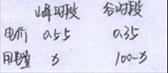 峰时段 谷时段
电价 0.55 0.35
用电量 x 100-x